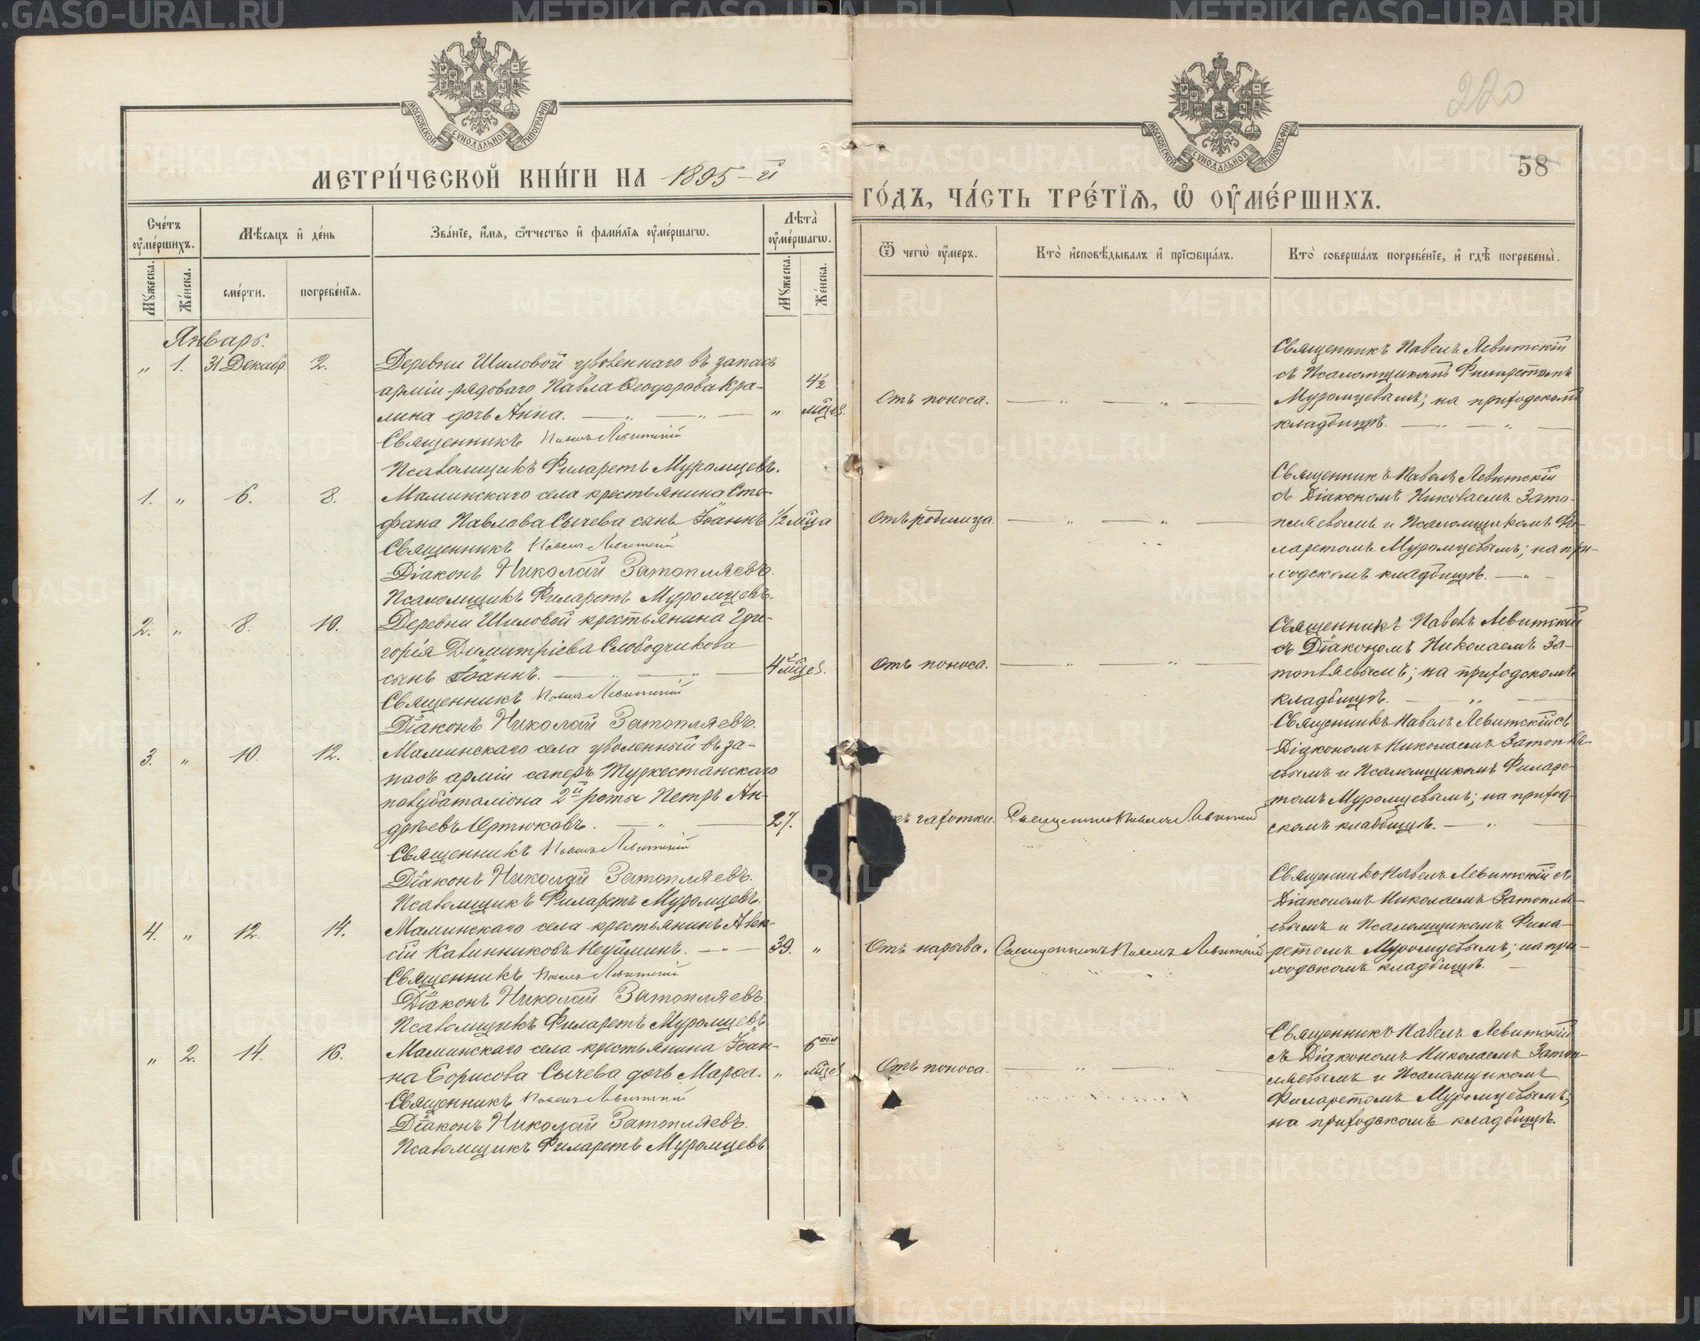 МЕТРИ́ЧЕСКОЙ КНИ́ГИ НА 1895-й
ГО́ДЪ, ЧА́СТЬ ТРЕ́ТІѦ, Ѽ ОУМЕ́РШИХЪ.
220
58
Сче́тъ оумершихъ.
Мѣсяцъ и де́нь
Зва́ніе, и́мя, ѻтчество и фами́лія оуме́ршагѡ.
Лѣта̀ оуме́ршагѡ.
Мꙋ́жеска.
Же́нска.
сме́рти.
погребе́нія.
Мꙋ́жеска.
Же́нска.
Ѿ чегѡ̀ оу́меръ.
Кто̀ исповѣ́дывалъ и пріѡбща́лъ.
Кто̀ соверша́лъ погребе́ніе, и гдѣ̀ погребены̀.
Январь.
„ 1. 31 Декабр. 2.
Деревни Шиловой уволеннаго въ запасъ
арміи рядоваго Павла Ѳеодорова Кра-
лина дочь Анна. — „ — „ 4½ мѣсе.
Священникъ Павелъ Левитскій
Псаломщикъ Филаретъ Муромцевъ.
Отъ поноса. — „ — „ —
Священникъ Павелъ Левитскій
съ Псаломщикомъ Филаретомъ
Муромцевымъ; на приходскомъ
кладбищѣ. — „ —
1. „ 6. 8.
Маминскаго села крестьянина Сте-
фана Павлова Сычева сынъ Іоаннъ ½ мѣца
Священникъ Павелъ Левитскій
Діаконъ Николай Затопляевъ.
Псаломщикъ Филаретъ Муромцевъ.
Отъ родимца — „ — „ —
Священникъ Павелъ Левитскій
съ Діакономъ Николаемъ Зато-
пляевымъ и Псаломщикомъ Фи-
ларетомъ Муромцевымъ; на при-
ходскомъ кладбищѣ. — „
2. „ 8. 10.
Деревни Шиловой крестьянина Гри-
горія Димитріева Слободчикова
сынъ Іоаннъ. — „ — 4 мѣсе.
Священникъ Павелъ Левитскій
Діаконъ Николай Затопляевъ.
Отъ поноса. — „ — „ —
Священникъ Павелъ Левитскій
съ Діакономъ Николаемъ За-
топляевымъ; на приходскомъ
кладбищѣ. — „ —
3. „ 10. 12.
Маминскаго села уволенный въ за-
пасъ арміи саперъ Туркестанскаго
полубаталіона 2й роты Петръ Ан-
дреевъ Ортюковъ. — „ — 27.
Священникъ Павелъ Левитскій
Діаконъ Николай Затопляевъ.
Псаломщикъ Филаретъ Муромцевъ.
чахотки. Священникъ Павелъ Левитскій
Священникъ Павелъ Левитскій съ
Діакономъ Николаемъ Затопля-
евымъ и Псаломщикомъ Филаре-
томъ Муромцевымъ; на приход-
скомъ кладбищѣ. — „ —
4. „ 12. 14.
Маминскаго села крестьянинъ Алек-
сій Калинниковъ Неуйминъ. — „ — 39. „
Священникъ Павелъ Левитскій
Діаконъ Николай Затопляевъ
Псаломщикъ Филаретъ Муромцевъ
Отъ нарыва. Священникъ Павелъ Левитскій
Священникъ Павелъ Левитскій съ
Діакономъ Николаемъ Затопля-
евымъ и Псаломщикомъ Фила-
ретомъ Муромцевымъ; на при-
ходскомъ кладбищѣ. —
„ 2. 14. 16.
Маминскаго села крестьянина Іоан-
на Борисова Сычева дочь Марѳа. „ 6ти мѣце
Священникъ Павелъ Левитскій
Діаконъ Николай Затопляевъ.
Псаломщикъ Филаретъ Муромцевъ
Отъ поноса. — „ — „ —
Священникъ Павелъ Левитскій
съ Діакономъ Николаемъ Затоп-
ляевымъ и Псаломщикомъ
Филаретомъ Муромцевымъ;
на приходскомъ кладбищѣ.